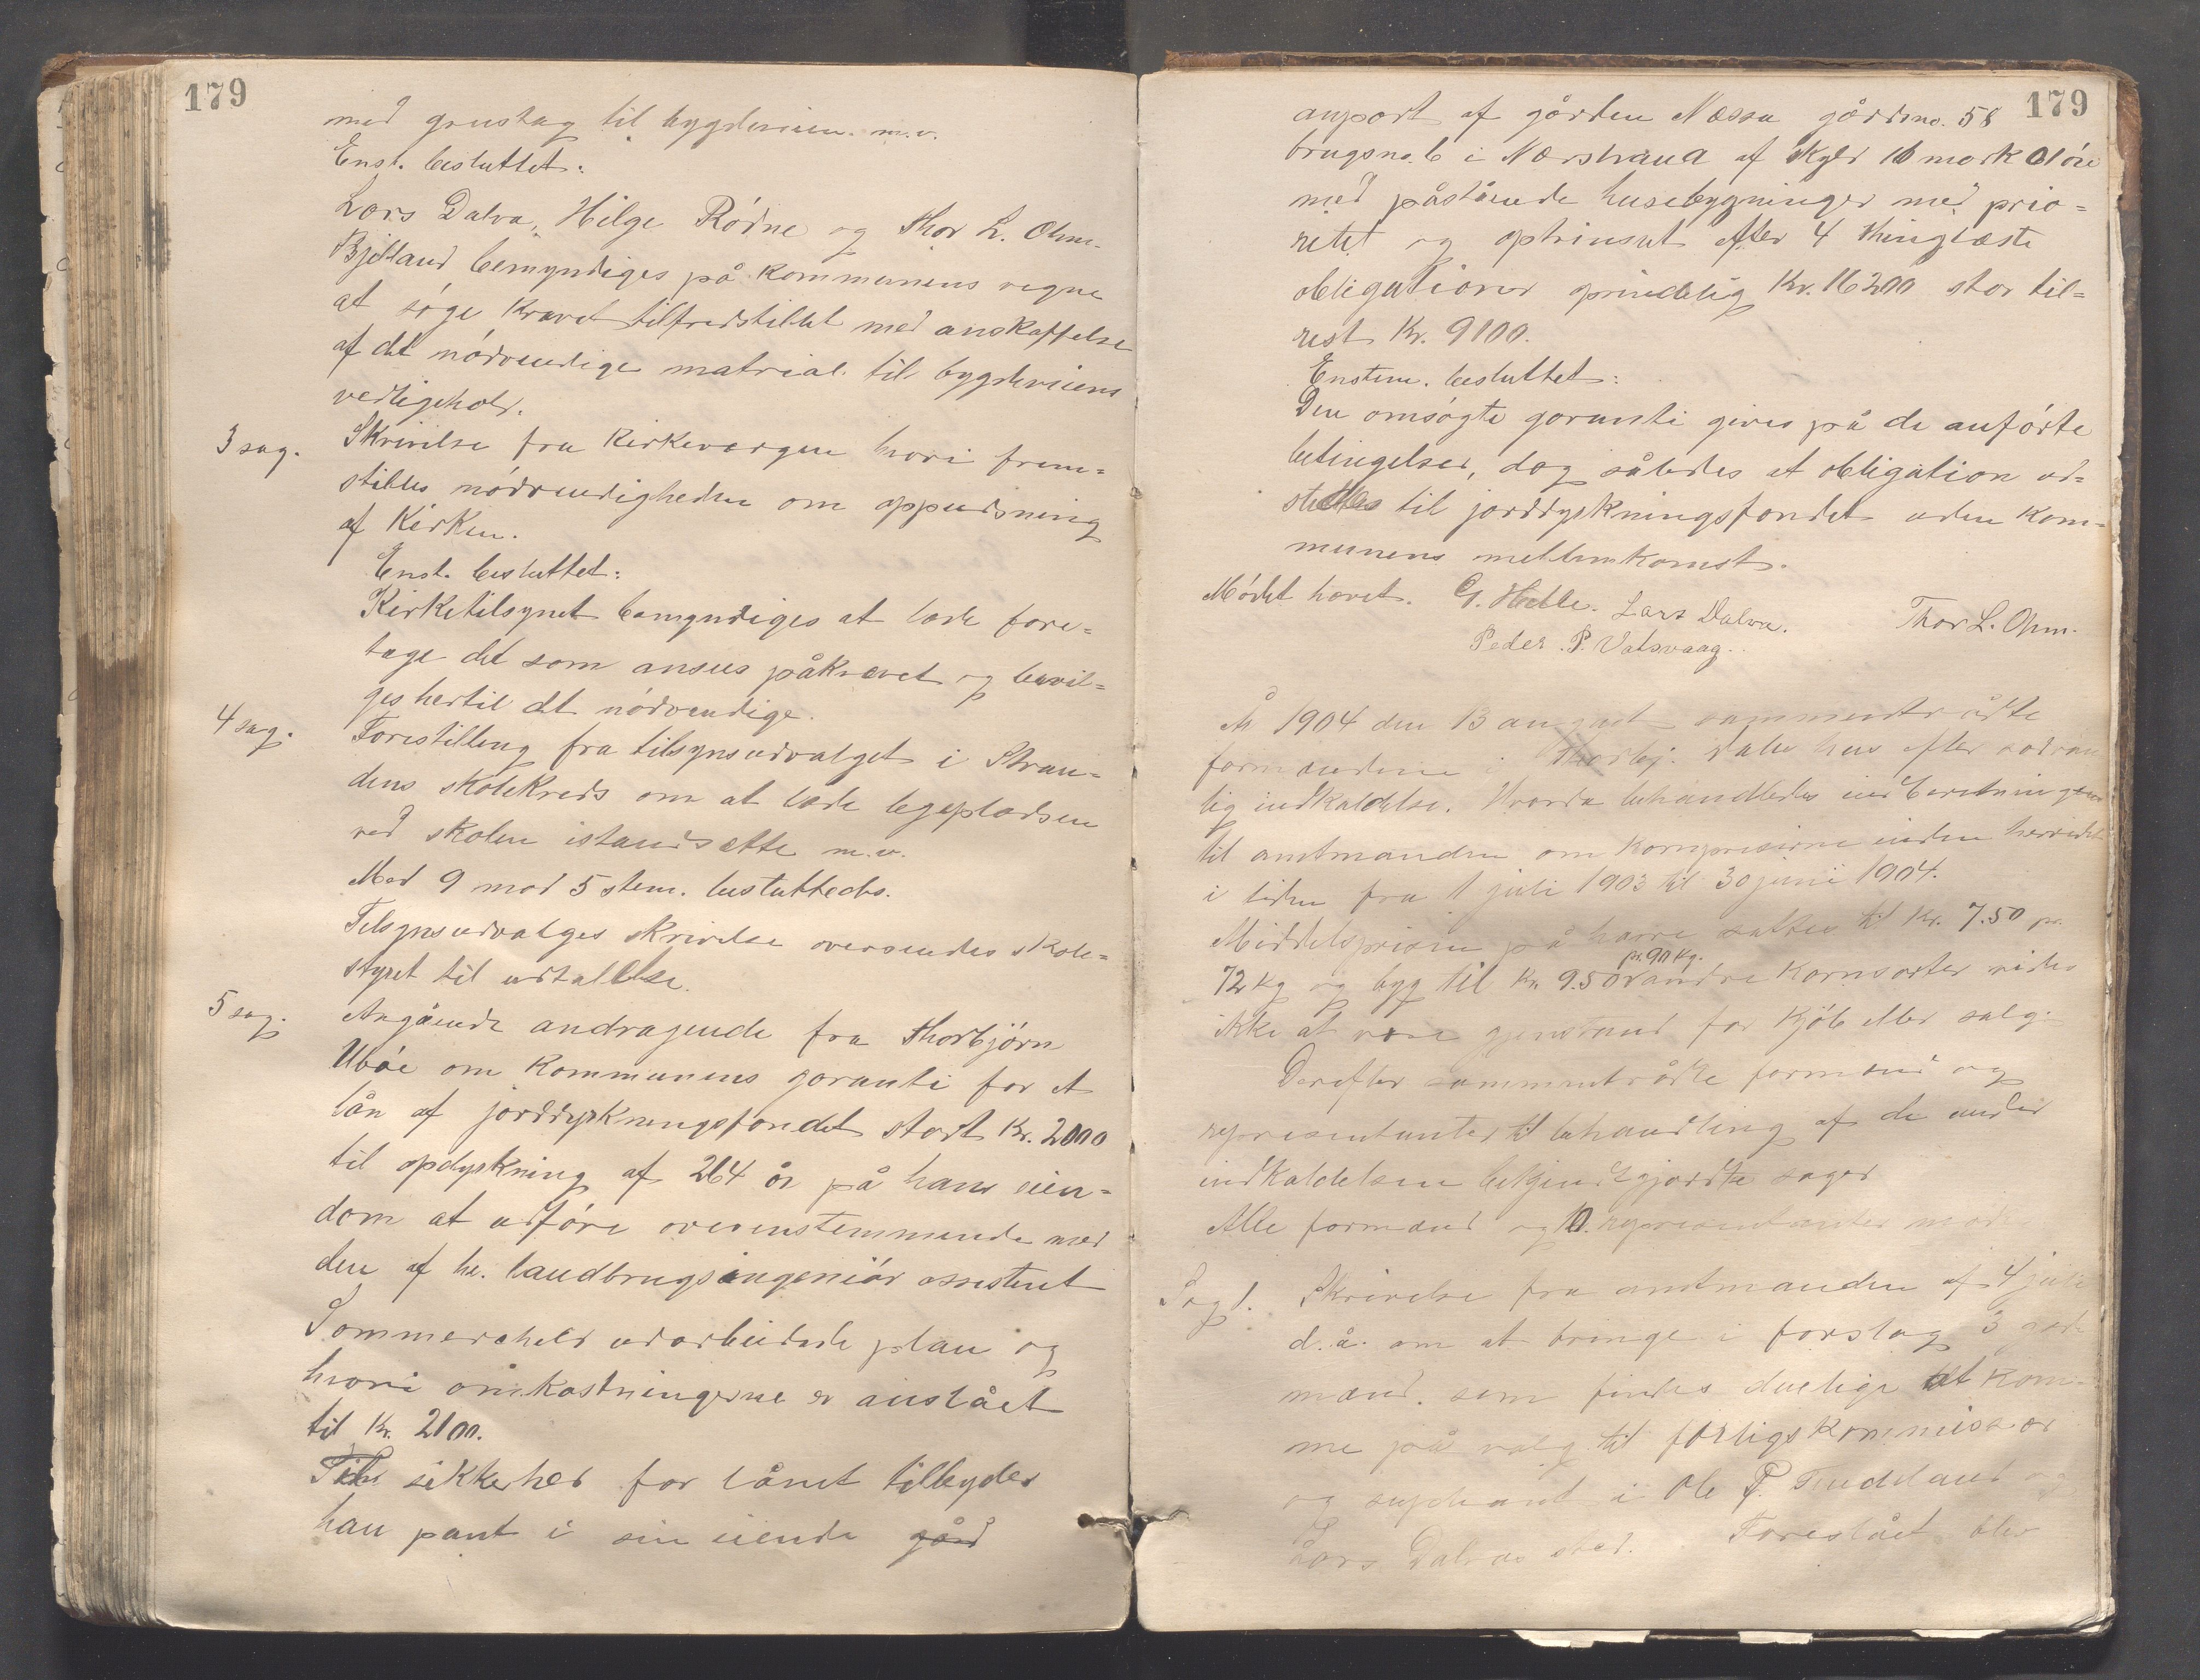 179
med grustag til bygdeveien m.v.
Enst. besluttet:
Lars Dalva, Helge Rødne og Thor L. Ohm-
Bjelland bemyndiges på kommunens vegne
at søge kravet tilfredstillet med anskaffelse
af det nødvendige matrial til bygdeveiens
vedligehold.
3 sag. Skrivelse fra Kirkevergen hvori frem=
stilles nødvendigheden om oppudsning
af Kirken.
Enst. besluttet:
Kirketilsynet bemyndiges at lade fore=
tage det som ansees påkrævet og bevil=
ges hertil det nødvendige.
4 sag. Forestilling fra tilsynsudvalget i Stran=
dens skolekreds om at lade legepladsen
ved skolen istandsætte m.v.
Med 9 mod 5 stem. besluttedes.
Tilsynsudvalges skrivelse oversendes skole=
styret til udtallelse.
5 sag. Angående andragende fra Thorbjörn
Ubøe om kommunens garanti for et
lån af jorddyrkningsfondet stort Kr. 2000
til opdyrkning af 264 ar på hans eien=
dom at udføre overenstemmende med
den af hr. landbrugsingeniør assistent
Sommerscheld udarbeidede plan og
hvori omkostningerne er anslået
til Kr. 2100.
Til sikkerhed for lånet tilbyder
han pant i sin eiende gård
179
anpart af gården Næssa gårdsno. 58
brugsno. 6 i Nærstrand af skyld 16 mark 01 øre
med påstående husebygninger med prio=
ritet og optrinsret efter 4 thinglæste
obligationer oprindelig Kr. 16200 stor til=
rest Kr. 9100.
Enstem. besluttet:
Den omsøgte garanti gives på de anførte
betingelser, dog således at obligation ud=
stedes til jorddyrkningsfondet uden kom=
munens mellemkomst.
Mødet hævet. G. Helle. Lars Dalva. Thor L. Ohm.
Peder P. Vatsvaag.
År 1904 den 13 august sammentrådte
formændene i Thorbj. hus efter
lig indkaldelse. Hvorda behandledes indberetningen
til amtmanden om kornpriserne inden herredet
i tiden fra 1 juli 1903 til 30 juni 1904.
Middelsprisen på havre sattes til Kr. 7.50 pr.
72 kg og byg til Kr. 9.50 pr. 90 kg. andre kornsorter vides
ikke at være gjenstand for kjøb eller salg.
Derefter sammentrådte formænd og
representanter til behandling af de under
indkaldelsen bekjendtgjordte sager
Alle formænd og 10 representanter mødt
Sag 1. Skrivelse fra amtmanden af 4 juli
d.å. om at bringe i forslag 3
mænd som findes duelige at kom=
me på valg til forligskommissær
og suppleant i Ole P. Tuddeland og
Lars Dalvas sted. Foreslået blev